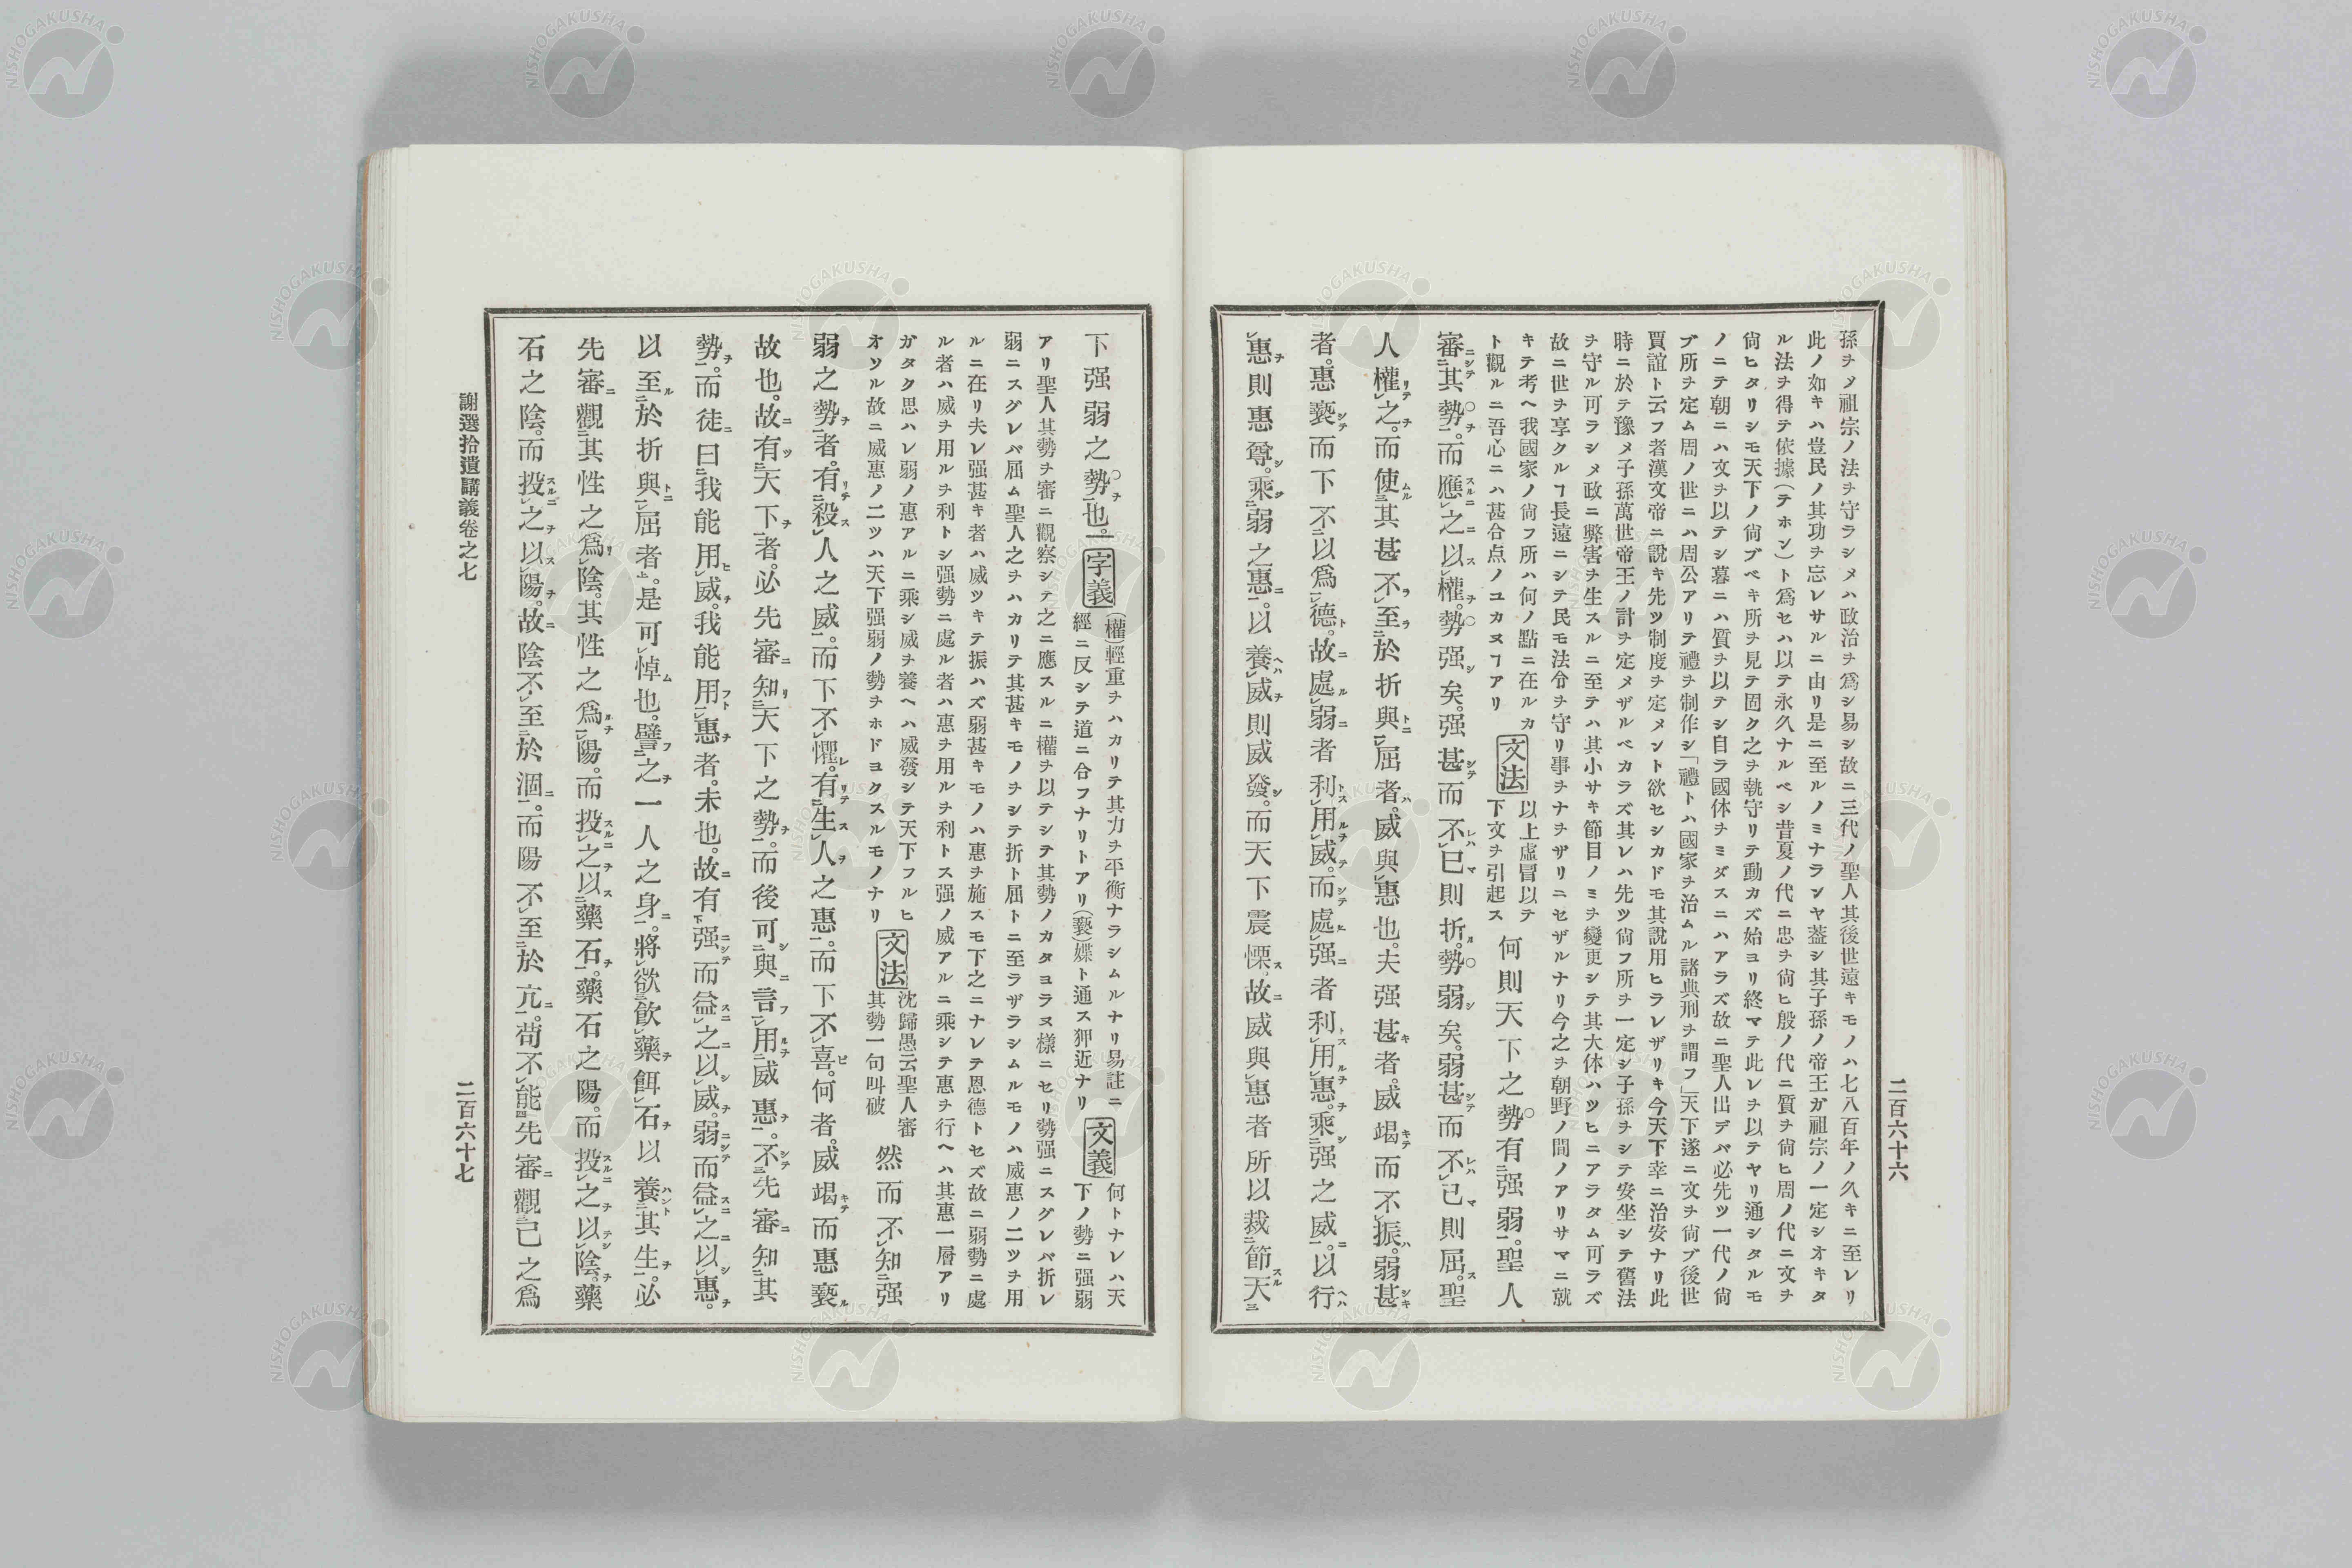 二百六十六
孫ヲメ祖宗ノ法ヲ守ラシメハ政治ヲ爲シ易シ故ニ三代ノ聖人其後世遠キモノハ七八百年ノ久キニ至レリ
此ノ如キハ豈民ノ其功ヲ忘レサルニ由リ是ニ至ルノミナランヤ葢シ其子孫ノ帝王ガ祖宗ノ一定シオキタ
ル法ヲ得テ依據(テホン)ト爲セハ以テ永久ナルベシ昔夏ノ代ニ忠ヲ尙ヒ殷ノ代ニ質ヲ尙ヒ周ノ代ニ文ヲ
尙ヒタリシモ天下ノ尙ブベキ所ヲ見テ固ク之ヲ執守リテ動カズ始ヨリ終マテ此レヲ以テヤリ通シタルモ
ノニテ朝ニハ文ヲ以テシ暮ニハ質ヲ以テシ自ラ國休ヲミダスニハアラズ故ニ聖人出デバ必先ツ一代ノ尙
ブ所ヲ定ム周ノ世ニハ周公アリテ禮ヲ制作シ「禮トハ國家ヲ治ムル諸典刑ヲ謂フ」天下遂ニ文ヲ尙ブ後世
賈誼ト云フ者漢文帝ニ說キ先ツ制度ヲ定メント欲セシカドモ其說用ヒラレザリキ今天下幸ニ治安ナリ此
時ニ於テ豫メ子孫萬世帝王ノ計ヲ定メザルベカラズ其レハ先ツ尙フ所ヲ一定シ子孫ヲシテ安坐シテ舊法
ヲ守ル可ラシメ政ニ弊害ヲ生スルニ至テハ其小サキ節目ノミヲ變更シテ其大休ハツヒニアラタム可ラズ
故ニ世ヲ享クルヿ長遠ニシテ民モ法令ヲ守リ事ヲナヲザリニセザルナリ今之ヲ朝野ノ間ノアリサマニ就
キテ考ヘ我國家ノ尙フ所ハ何ノ點ニ在ルカ
ト觀ルニ吾心ニハ甚合点ノユカヌヿアリ
文法 以上虛冒以テ
下文ヲ引起ス
何則天下之勢有强弱。聖人
審其勢。而應之以權。勢强矣。强甚而不已則折。勢弱矣。弱甚而不已則屈。聖
人權之。而使其甚不至於折與屈者。威與惠也。夫强甚者。威竭而不振。弱甚
者。惠褻而下不以爲德。故處弱者利用威。而處强者利用惠。乘强之威。以行
惠則惠尊。乘弱之惠。以養威則威發。而天下震慄。故威與惠者所以裁節天
下强弱之勢也。
字義 (權)輕重ヲハカリテ其力ヲ平衡ナラシムルナリ易註ニ
經ニ反シテ道ニ合フナリトアリ(褻)媟ト通ス狎近ナリ
文義 何トナレハ天
下ノ勢ニ强弱
アリ聖人其勢ヲ審ニ觀察シテ之ニ應スルニ權ヲ以テシテ其勢ノカタヨラヌ樣ニセリ勢强ニスグレバ折レ
弱ニスグレバ屈ム聖人之ヲハカリテ其甚キモノヲシテ折ト屈トニ至ラザラシムルモノハ威惠ノ二ツヲ用
ルニ在リ夫レ强甚キ者ハ威ツキテ振ハズ弱甚キモノハ惠ヲ施スモ下之ニナレテ恩德トセズ故ニ弱勢ニ處
ル者ハ威ヲ用ルヲ利トシ强勢ニ處ル者ハ惠ヲ用ルヲ利トス强ノ威アルニ乘シテ惠ヲ行ヘハ其惠一層アリ
ガタク思ハレ弱ノ惠アルニ乘シ威ヲ養ヘハ威發シテ天下フルヒ
オソル故ニ威惠ノ二ツハ天下强弱ノ勢ヲホドヨクスルモノナリ
文法 沈歸愚云聖人審
其勢一句叫破
然而不知强
弱之勢者。有殺人之威。而下不懼。有生人之惠。而下不喜。何者。威竭而惠褻
故也。故有天下者。必先審知天下之勢。而後可與言用威惠。不先審知其
勢。而徒曰我能用威。我能用惠者。未也。故有强而益之以威。弱而益之以惠。
以至於折與屈者。是可悼也。譬之一人之身。將欲飮藥餌石以養其生。必
先審觀其性之爲陰。其性之爲陽。而投之以藥石。藥石之陽。而投之以陰。藥
石之陰。而投之以陽。故陰不至於涸。而陽不至於亢。苟不能先審觀己之爲
謝選拾遺講義卷之七
二百六十七